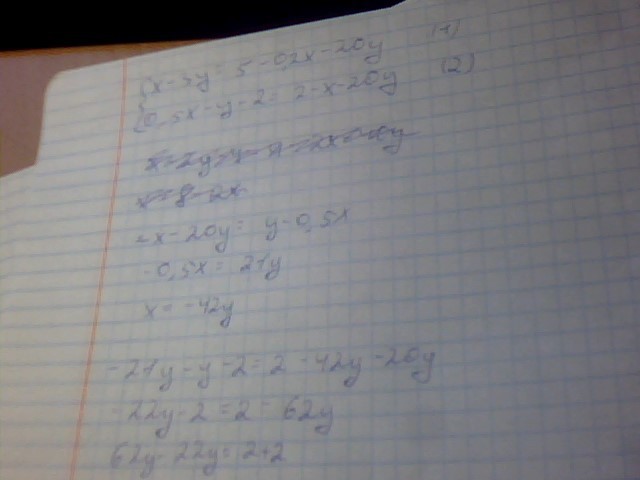 {x-5y= 5-0,2x-20y (1)
{0,5x-y-2= 2-x-20y (2)
-x-20y= y-0,5x
-0,5x= 21y
x= -42y
-21y-y-2=2-42y-20y
-22y-2=2-62y
62y-22y=2+2